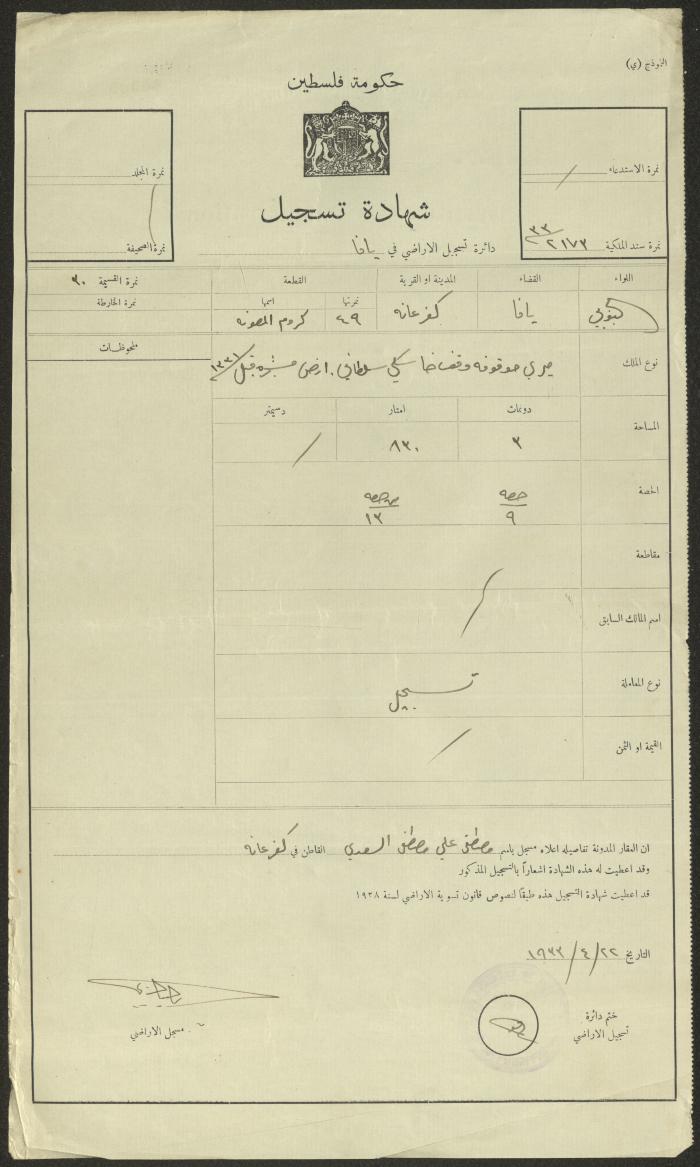 النموذج (ي)
حكومة فلسطين
نمرة الاستدعاء /
نمرة المجلد
شهادة تسجيل
نمرة سند الملكية ٢١٧٣/٣٣
نمرة الصحيفة
دائرة تسجيل الاراضي في يافا
اللواء القضاء المدينة او القرية القطعة نمرة القسيمة ٣٠
نمرتها اسمها نمرة الخارطة
الجنوبي يافا كفرعانه ٤٩ كروم المصونه
ملحوظات
نوع الملك ميري موقوفه وقف سلطاني. ارض قبل ١٣٣١
دونمات امتار دسيمتر
المساحة ٣ ٨٣٠ /
الحصة حصه ٩ من حصه ١٣
مقاطعة
اسم المالك السابق /
نوع المعاملة تسجيل
القيمة او الثمن /
ان العقار المدونة تفاصيله اعلاه مسجل باسم مصطفى علي مصطفى السعدي القاطن في كفرعانه
وقد اعطيت له هذه الشهادة اشعاراً بالتسجيل المذكور
قد اعطيت شهادة التسجيل هذه طبقا لنصوص قانون تسوية الاراضي لسنة ١٩٢٨
التاريخ ٢٢/٤/١٩٣٣
ختم دائرة
تسجيل الاراضي
مسجل الاراضي